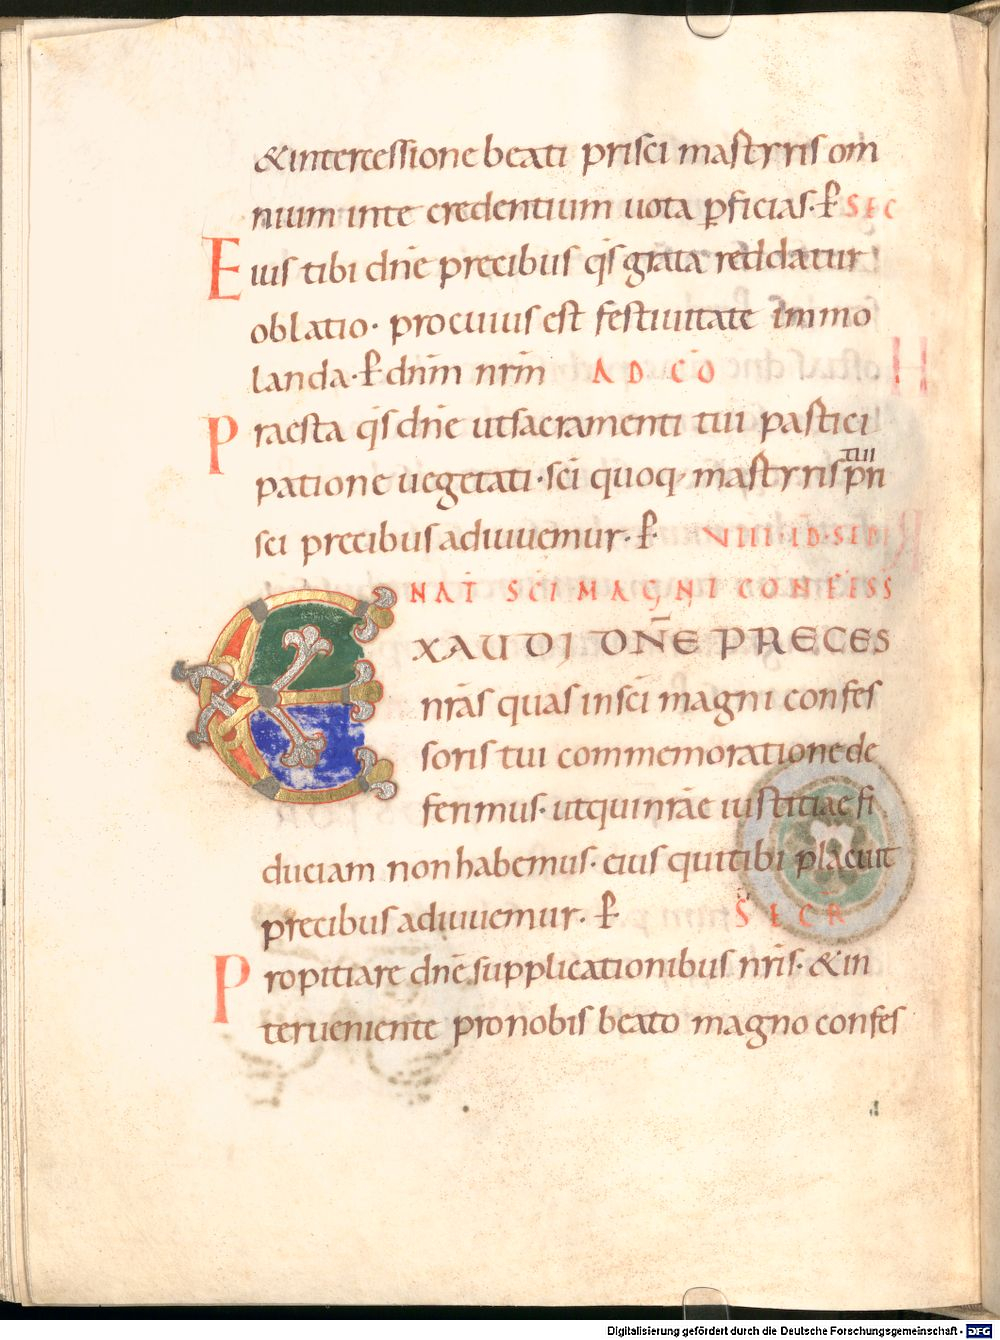 &intercessione beati prisci martyris om
nium inte credentium uota ꝑficias· ꝑ SEC
Eius tibi dn̄e precibus q̄s grata reddatur
oblatio· procuius est festiuitate immo
landa· ꝑ dn̄m nr̄m AD CŌ
Praesta q̄s dn̄e utsacramenti tui partici
patione uegetati· sc̄i quoq; martyris tui pri
sci precibus adiuuemur· ꝑ VIII·ID·SEP̄
NAT̄ SC̄I MAGNI CONFESS
EXAUDI DN̄E PRECES
nr̄as quas insc̄i magni confes
soris tui commemoratione de
ferimus· utquinr̄ae iustitiae fi
duciam nonhabemus· eius quitibi placuit
precibus adiuuemur· ꝑ SECR̄
Propitiare dn̄e supplicationibus nr̄is· &in
terueniente pronobis beato magno confes
Digitalisierung gefördert durch die Deutsche Forschungsgemeinschaft - DFG